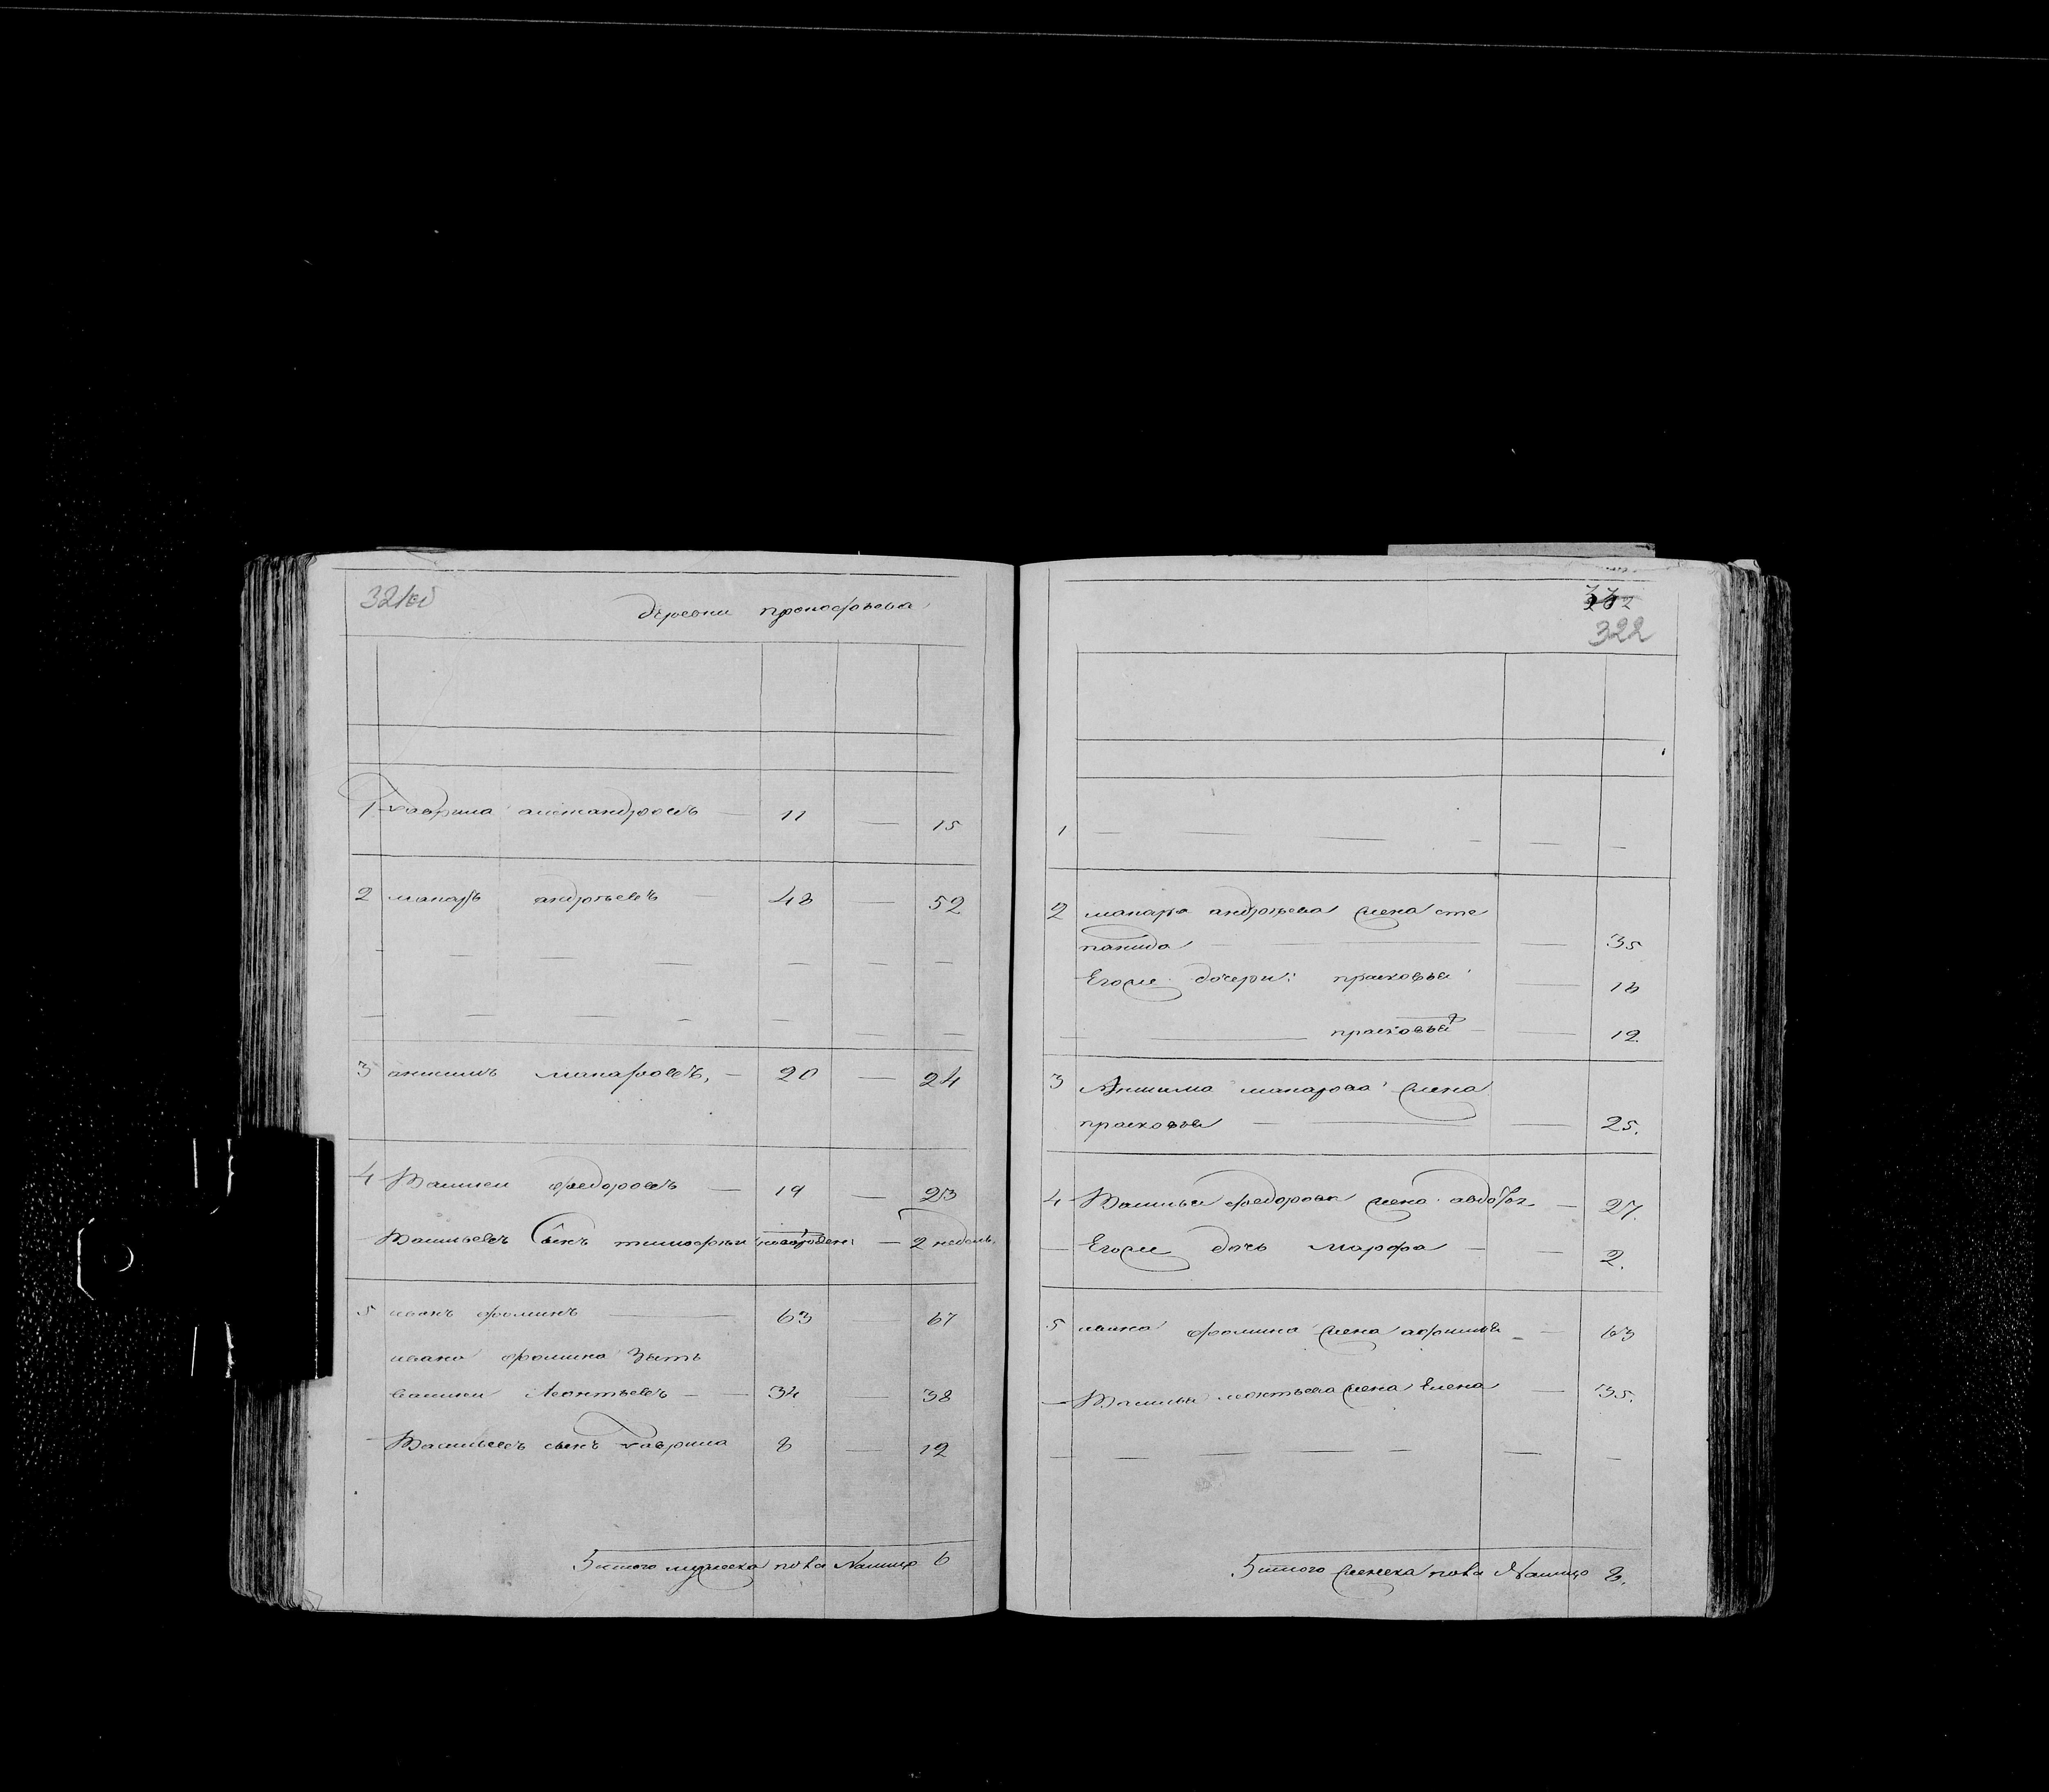 321об
деревни прокофьева
1 гаврила александровъ — 11 — 15
2 макаръ андрѣевъ — 48 — 52
3 акимъ макаровъ, — 20 — 24
4 Василеи федоровъ — 19 — 23
Васильевъ Сынъ тимофеи новорожденъ — 2 недель
5 иванъ фоминъ — 63 — 67
ивана фомина Зять
василеи Леонтьевъ — 34 — 38
Васильевъ сынъ гаврила 8 — 12
итого мужеска пола налицо 6
322
1
2 макара андрѣева жена сте
панида — 35
Егоже дочери: прасковья — 18
прасковья — 12
3 Акима макарова жена
прасковья — 25.
4 Василья федорова жена авдотья — 27.
Егоже дочь марфа — 2.
5 ивана фомина жена афимья — 63
Василья леонтьева жена Елена — 35.
итого женска пола налицо 8.